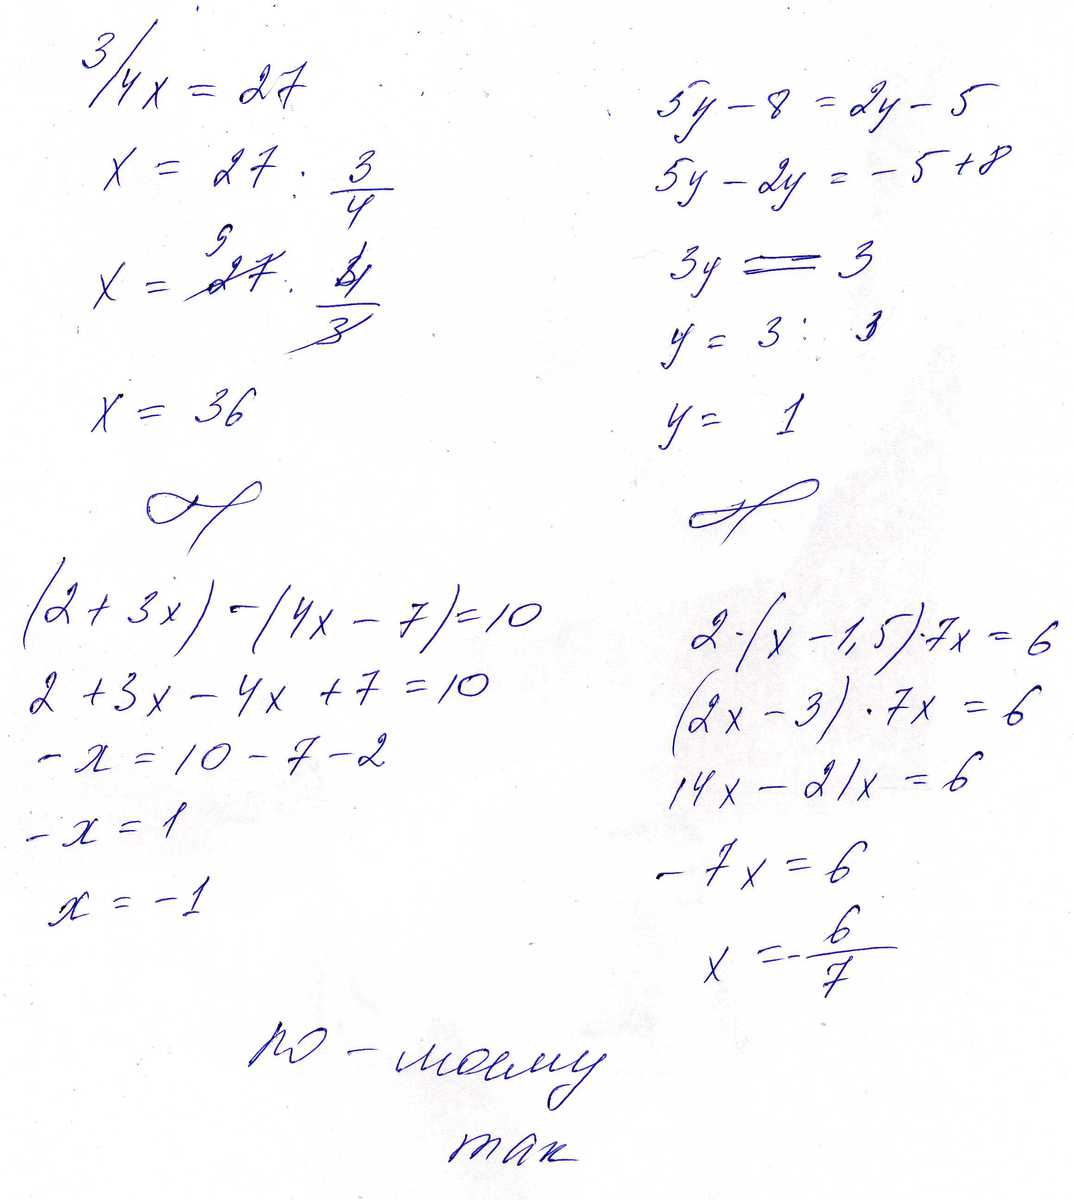 3/4x = 27
x = 27 : 3/4
x = 27 · 4/3
x = 36
5y - 8 = 2y - 5
5y - 2y = -5 + 8
3y = 3
y = 3 : 3
y = 1
(2 + 3x) - (4x - 7) = 10
2 + 3x - 4x + 7 = 10
-x = 10 - 7 - 2
-x = 1
x = -1
2·(x - 1,5)·7x = 6
(2x - 3)·7x = 6
14x - 21x = 6
-7x = 6
x = -6/7
по-моему
так